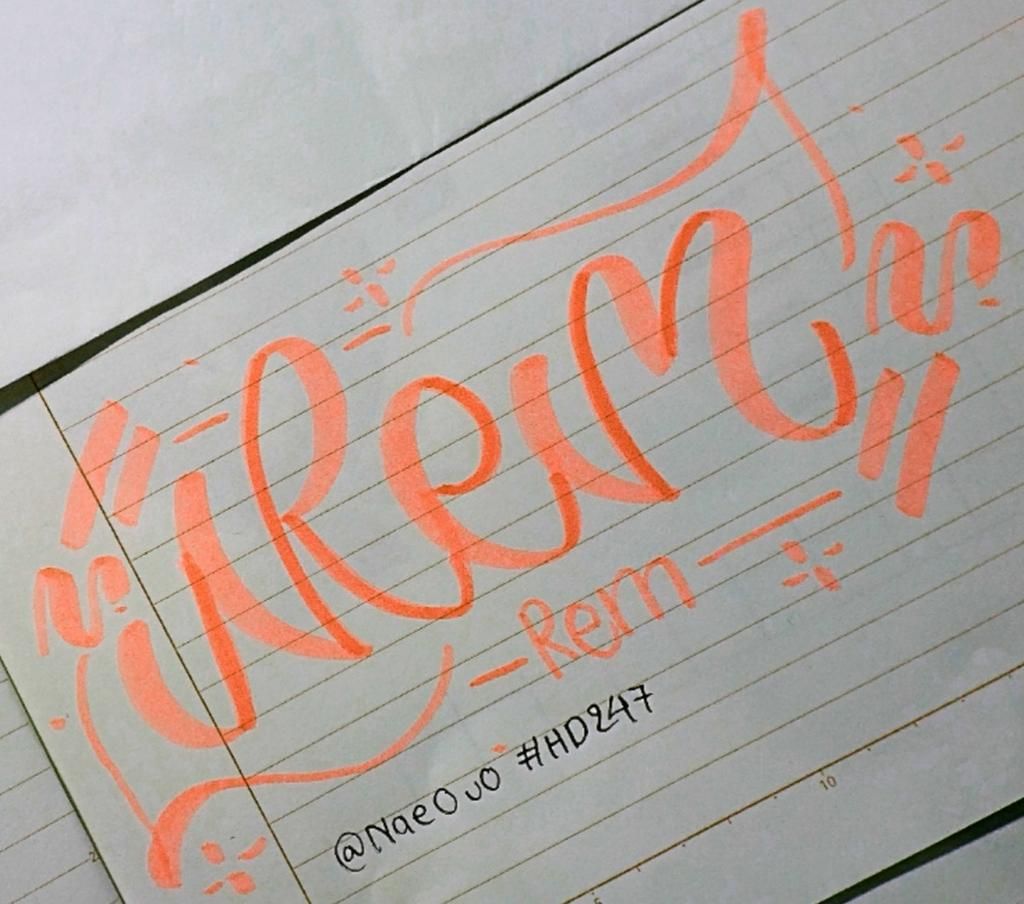 Rem
-Rem-
@NaeOJO #HD247
10
5
2